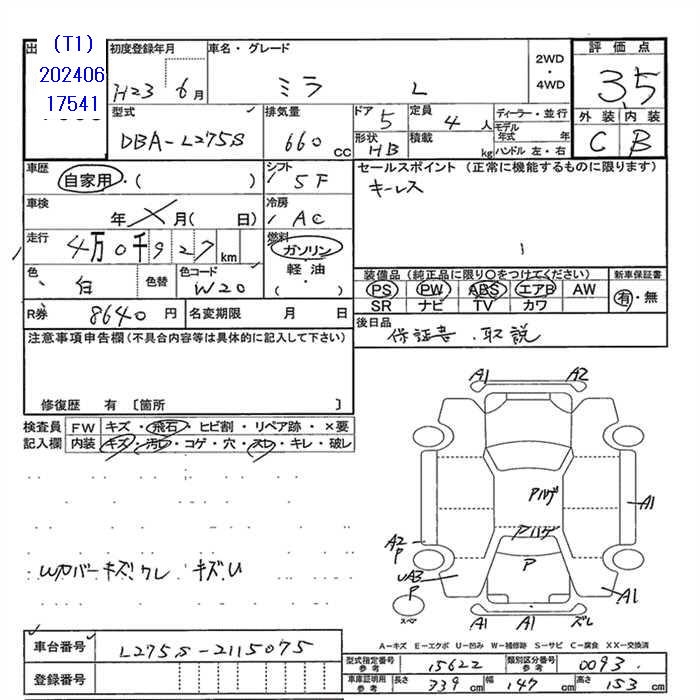 出 (T1) 202406 17541
初度登録年月 H23 6月
車名・グレード ミラ L
2WD・4WD
評価点 3.5
外装 内装
C B
型式 DBA-L275S
排気量 660 CC
ドア 5 定員 4人
形状 HB 積載 kg
ディーラー・並行
モデル年式 年
ハンドル 左・右
車歴 自家用・( )
シフト 5F
セールスポイント (正常に機能するものに限ります)
キーレス
車検 年 月( 日)
冷房 AC
走行 4万0千927km
燃料 ガソリン・軽油・( )
色 白 色替 色コード W20
装備品 (純正品に限り○をつけてください) 新車保証書
PS PW ABS エアB AW 有・無
SR ナビ TV カワ
R券 8640円 名変期限 月 日
後日品 保証書.取説
注意事項申告欄(不具合内容等は具体的に記入して下さい)
修復歴 有 〔箇所 〕
検査員 FW キズ・飛石・ヒビ割・リペア跡・×要
記入欄 内装 キズ・汚レ・コゲ・穴・スレ・キレ・破レ
A1 A2
A1
Aハゲ
Aハゲ
A2 P
P
UA3 P
A1
スペア
A1 A1 ズレ
キズU
車台番号 L275S-2115075
登録番号
A−キズ E−エクボ U−凹み W−補修跡 S−サビ C−腐食 XX−交換済
型式指定番号 参考 15622 類別区分番号 参考 0093
車庫証明用 参考 長さ 339cm 幅 147cm 高さ 153cm